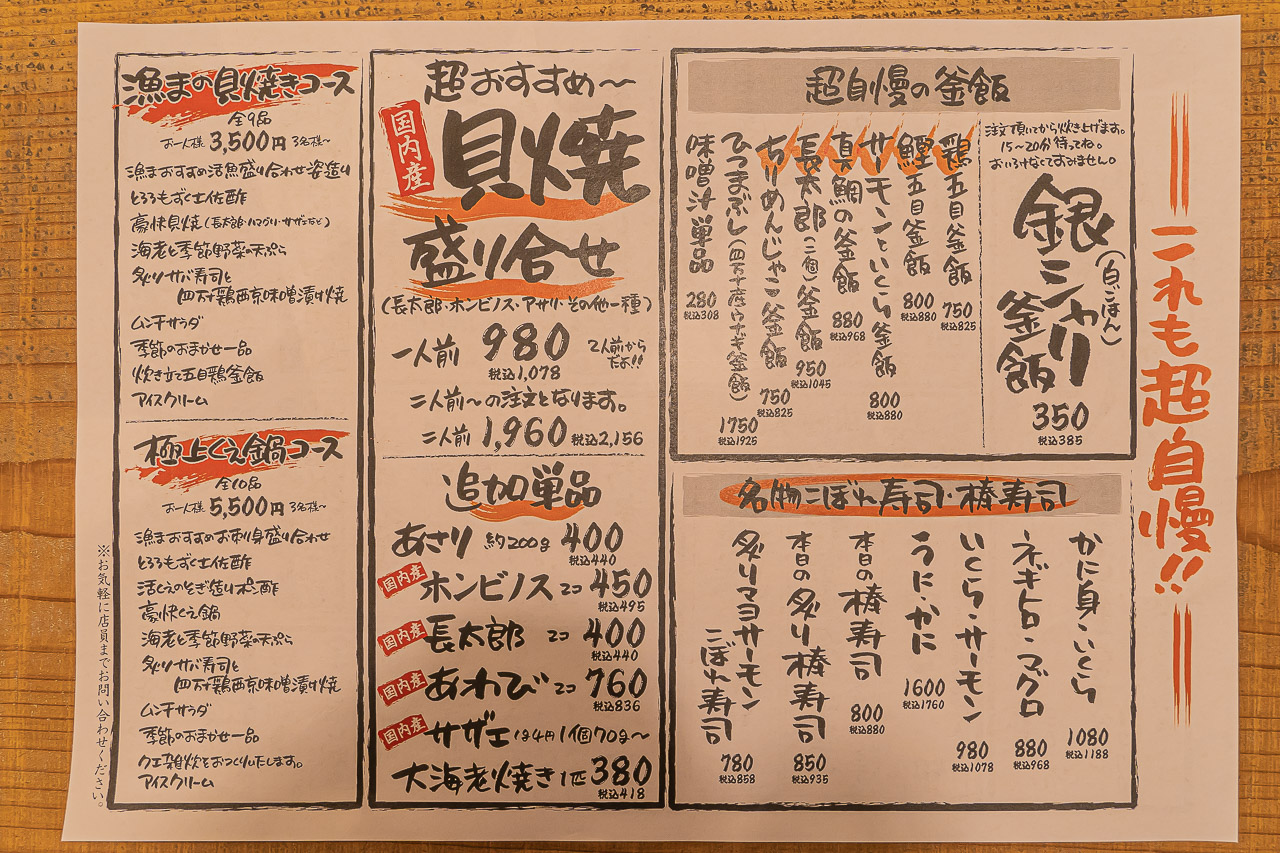 漁まの貝焼きコース
全9品
お一人様 3,500円 3名様〜
漁まおすすめ活魚盛り合わせ姿造り
とろろもずく土佐酢
豪快貝焼(長太郎・ハマグリ・サザエなど)
海老と季節野菜の天ぷら
炙りサバ寿司と
四万十鶏西京味噌漬け焼
ムンチサラダ
季節のおまかせ一品
炊き立て五目鶏釜飯
アイスクリーム
極上くえ鍋コース
全10品
お一人様 5,500円 3名様〜
漁まおすすめお刺身盛り合わせ
とろろもずく土佐酢
活くえのそぎ造りポン酢
豪快くえ鍋
海老と季節野菜の天ぷら
炙りサバ寿司と
四万十鶏西京味噌漬け焼
ムンチサラダ
季節のおまかせ一品
クエ雑炊をおつくりいたします。
アイスクリーム
※お気軽に店員までお問い合わせください。
超おすすめ〜
国内産
貝焼
盛り合せ
(長太郎・ホンビノス・アサリ・その他一種)
一人前 980 2人前からだよ!!
税込1,078
二人前〜の注文となります。
二人前 1,960 税込2,156
追加単品
あさり 約200g 400
税込440
国内産 ホンビノス 2コ 450
税込495
国内産 長太郎 2コ 400
税込440
国内産 あわび 2コ 760
税込836
国内産 サザエ 1g4円 1個70g〜
大海老焼き 1匹 380
税込418
超自慢の釜飯
注文頂いてから炊き上げます。
15〜20分待ってね。
おいそぎなくてすみません。
銀シャリ釜飯
(白ごはん)
350
税込385
鶏五目釜飯
750
税込825
鰹五目釜飯
800
税込880
サーモンといくら釜飯
800
税込880
真鯛の釜飯
880
税込968
長太郎(二個)釜飯
950
税込1045
ちりめんじゃこ釜飯
750
税込825
ひつまぶし(四万十産ウナギ釜飯)
1750
税込1925
味噌汁単品
280
税込308
名物こぼれ寿司・棒寿司
かに身・いくら
1080
税込1188
ネギトロ・マグロ
880
税込968
いくら・サーモン
980
税込1078
うにかに
1600
税込1760
本日の棒寿司
800
税込880
本日の炙り棒寿司
850
税込935
炙りマヨサーモン
こぼれ寿司
780
税込858
これも超自慢!!